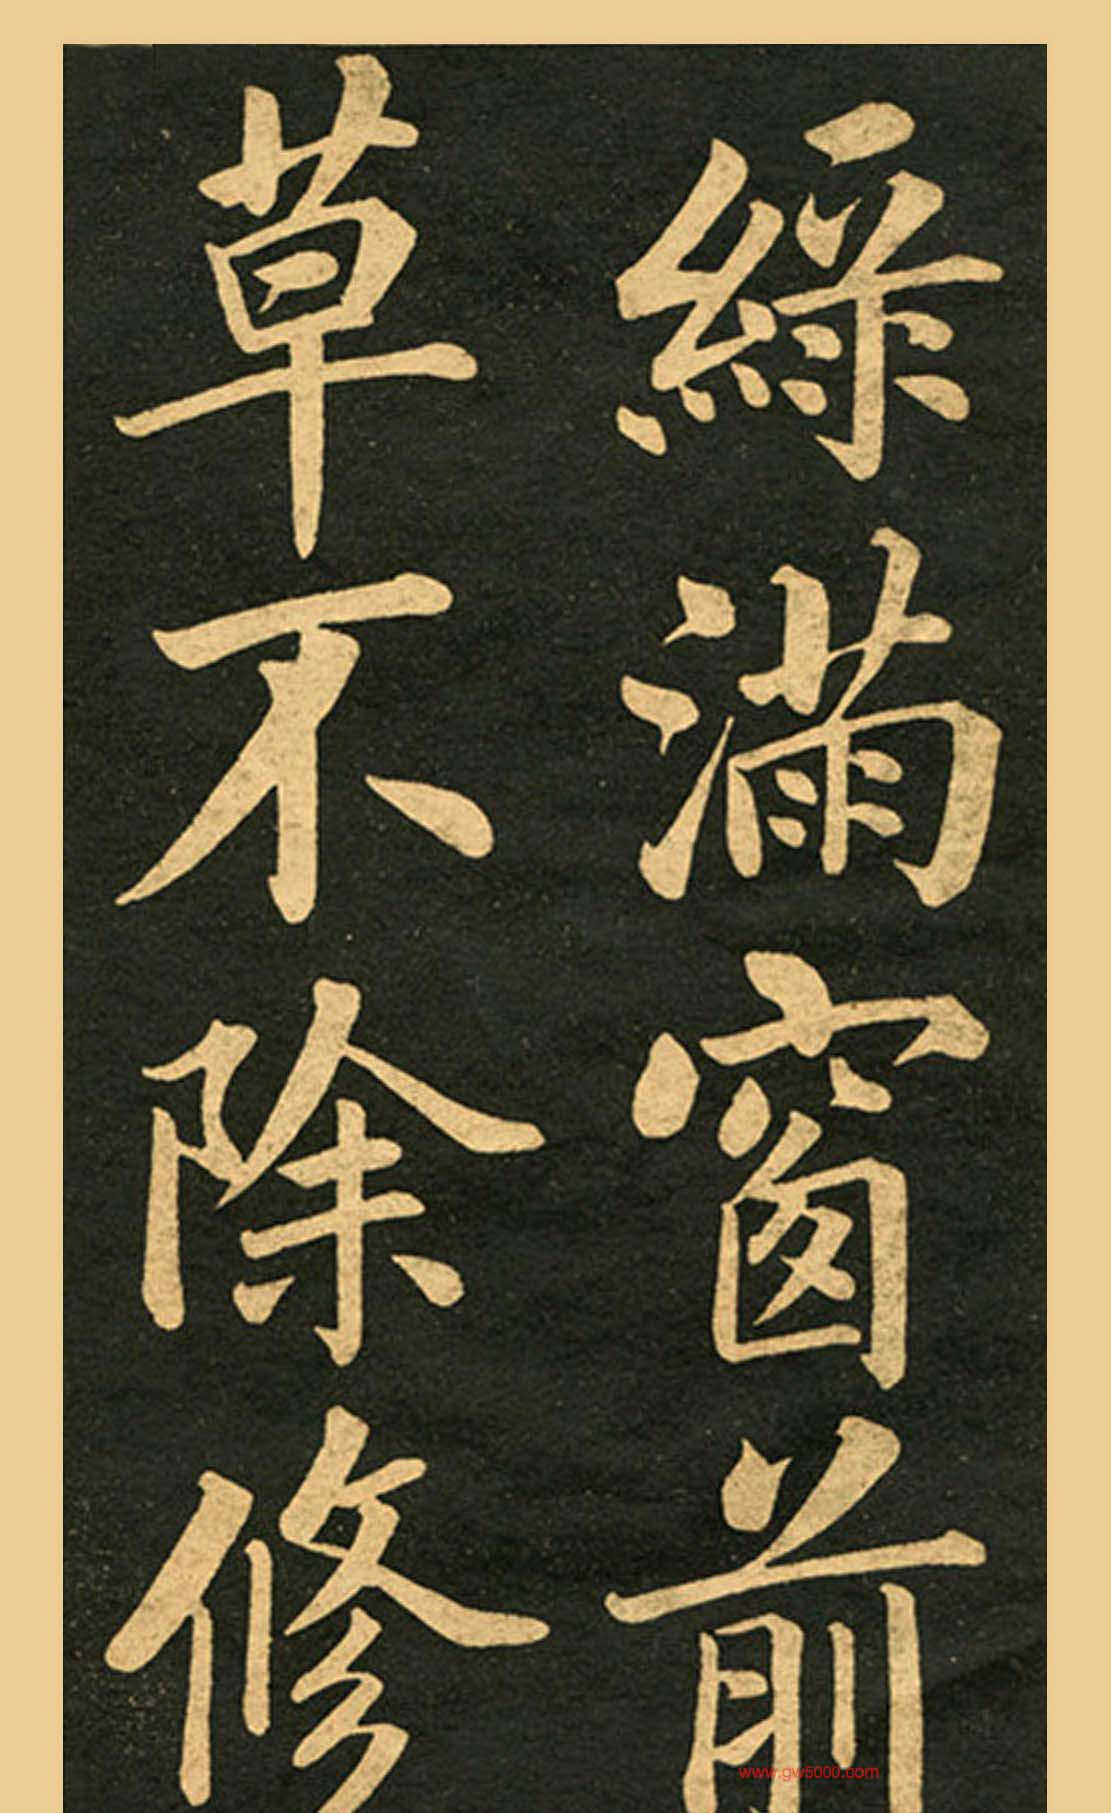 綠滿窗前
草不除修
www.gw5000.com